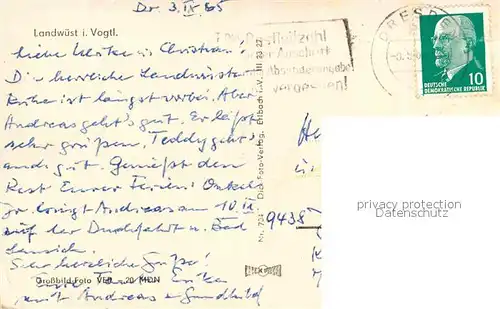 Dr. 3.IX 65
Landwüst i. Vogtl.
Liebe Christian!
Die herrliche Landwüster
Ruhe ist längst vorbei. Aber
Andreas geht's gut. Er läßt
sehr grüßen. Teddy geht's
auch gut. Genießt den
Rest Eurer Ferien! Onkel
Dr. bringt Andreas am 10 IX
auf der Durchfahrt n. Bad
Sehr herzliche Grüße!
Eure
mit Andreas + Gundhild
Großbild-Foto VEB 20 MDN
Nr. 724 Dick Foto-Verlag, Erlbach i. V. III 23 27
Postleitzahl
Anschrift
Absenderangabe
vergessen!
DRESDEN
10
DEUTSCHE
DEMOKRATISCHE REPUBLIK
9438
privacy protection
Datenschutz